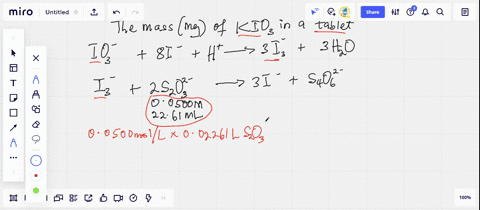 miro
Untitled
Share
The mass (mg) of KIO3 in a tablet
IO3⁻ + 8I⁻ + H⁺ → 3I3⁻ + 3H2O
I3⁻ + 2S2O3²⁻ → 3I⁻ + S4O6²⁻
0.0500M
22.61mL
0.0500mol/L × 0.02261L S2O3
100%